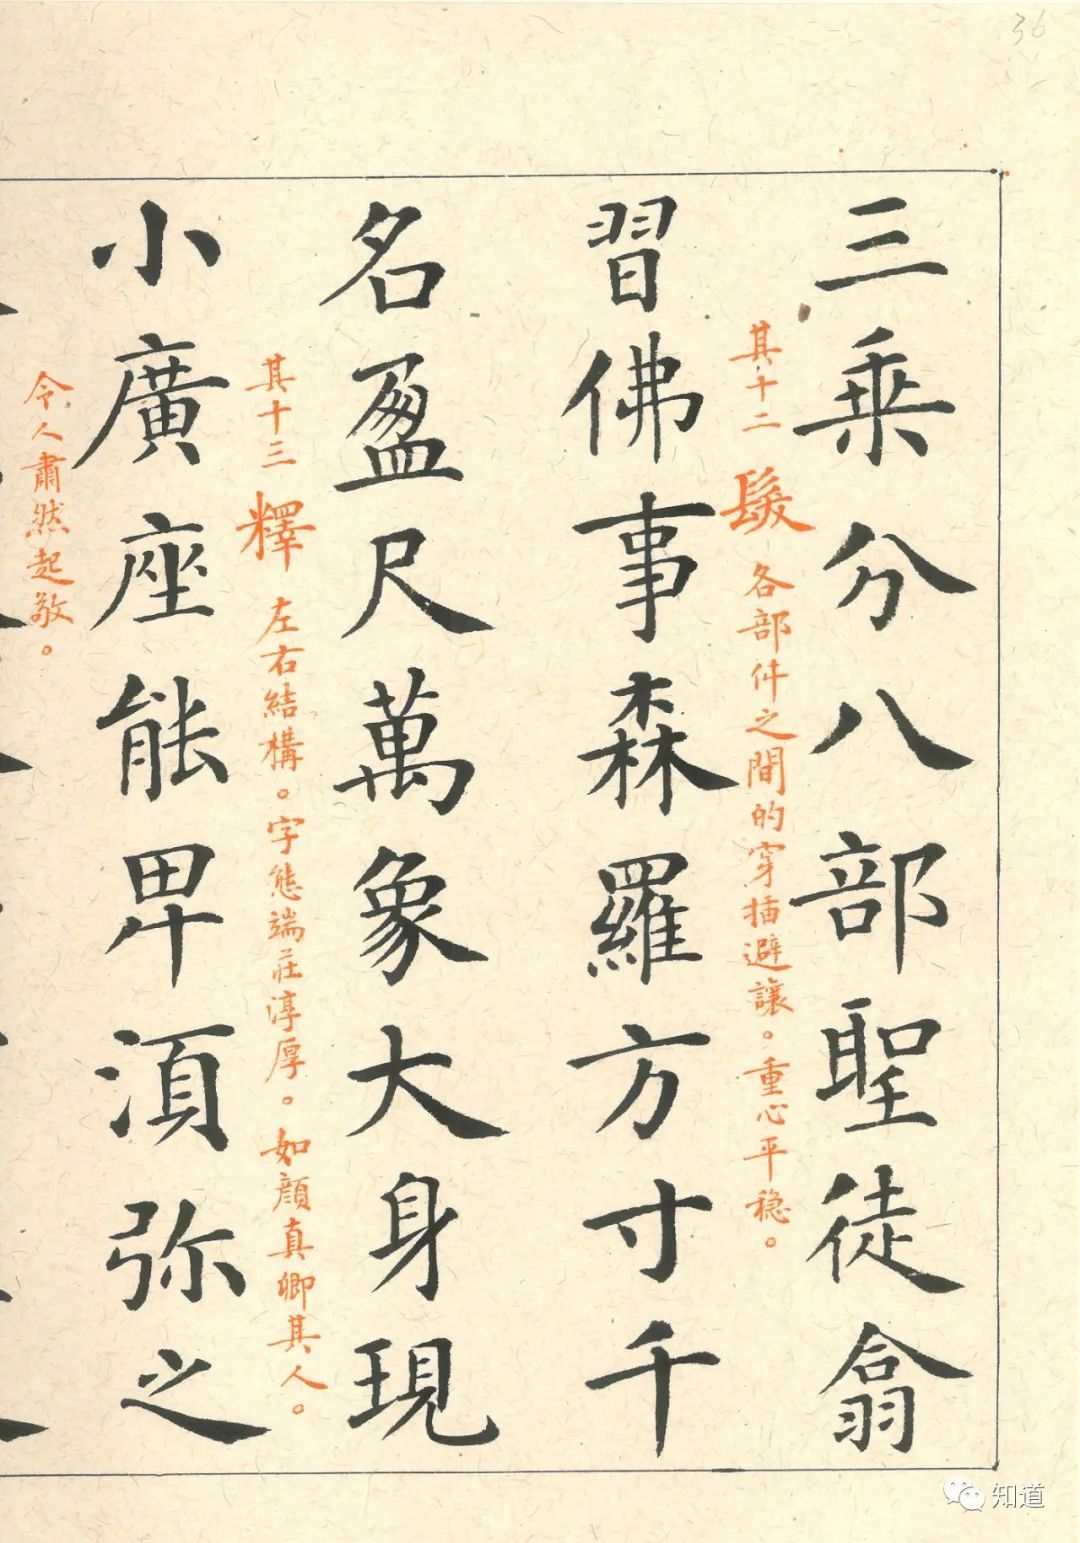 36
三乗分八部聖徒翕
其十二 髮 各部件之間的穿插避讓。重心平稳。
習佛事森羅方寸千
名盈尺萬象大身現
其十三 釋 左右結構。字態端莊淳厚。如顔真卿其人。
小廣座能卑湏弥之
令人肅然起敬。
知道